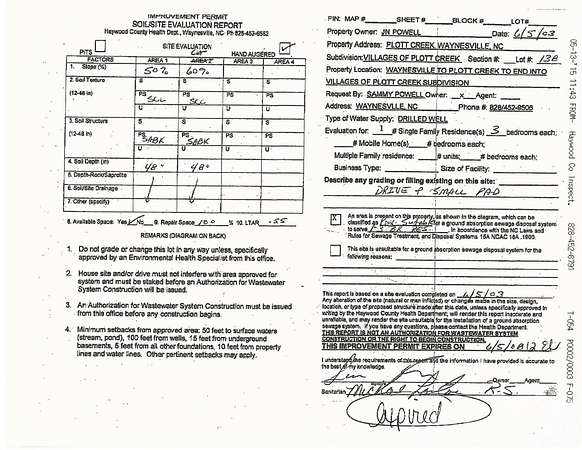 IMPROVEMENT PERMIT
SOIL/SITE EVALUATION REPORT
Haywood County Health Dept., Waynesville, NC Ph 828-452-6682
SITE EVALUATION
PITS Cut HAND AUGERED ✓
FACTORS AREA 1 AREA 2 AREA 3 AREA 4
1. Slope (%) 50% 60%
2. Soil Texture S S S S
(12-48 in) PS SCL PS SCL PS PS
U U U U
3. Soil Structure S S S S
(12-48 in) PS SABK PS SABK PS PS
U U U U
4. Soil Depth (in) 48" 48"
5. Depth-Rock/Saprolite
6. Soil/Site Drainage
7. Other (specify)
8. Available Space: Yes ✓ No 9. Repair Space 100 % 10. LTAR .55
REMARKS (DIAGRAM ON BACK)
1. Do not grade or change this lot in any way unless, specifically
approved by an Environmental Health Specialist from this office.
2. House site and/or drive must not interfere with area approved for
system and must be staked before an Authorization for Wastewater
System Construction will be issued.
3. An Authorization for Wastewater System Construction must be issued
from this office before any construction begins.
4. Minimum setbacks from approved area: 50 feet to surface waters
(stream, pond), 100 feet from wells, 15 feet from underground
basements, 5 feet from all other foundations, 10 feet from property
lines and water lines. Other pertinent setbacks may apply.
PIN: MAP # SHEET # BLOCK # LOT#
Property Owner: JN POWELL Date: 6/5/03
Property Address: PLOTT CREEK WAYNESVILLE, NC
Subdivision: VILLAGES OF PLOTT CREEK Section #: Lot #: 138
Property Location: WAYNESVILLE TO PLOTT CREEK TO END INTO
VILLAGES OF PLOTT CREEK SUBDIVISION
Request By: SAMMY POWELL Owner: x Agent:
Address: WAYNESVILLE, NC Phone #: 828/452-9508
Type of Water Supply: DRILLED WELL
Evaluation for: 1 # Single Family Residence(s) 3 bedrooms each;
# Mobile Home(s) # bedrooms each;
Multiple Family residence: # units; # bedrooms each;
Business Type: Size of Facility:
Describe any grading or filling existing on this site:
DRIVE + SMALL PAD
X An area is present on this property, as shown in the diagram, which can be
classified as Prov. Suitable for a ground absorption sewage disposal system
to serve 1-3 BR RES. in accordance with the NC Laws and
Rules for Sewage Treatment, and Disposal Systems 15A NCAC 18A .1900.
This site is unsuitable for a ground absorption sewage disposal system for the
following reasons:
This report is based on a site evaluation completed on 6/5/03
Any alteration of the site (natural or man inflicted) or changes made in the site, design,
location, or type of proposed structure made after this date, unless specifically approved in
writing by the Haywood County Health Department, will render this report inaccurate and
unreliable, and may render the site unsuitable for the installation of a ground absorption
sewage system. If you have any questions, please contact the Health Department.
THIS REPORT IS NOT AN AUTHORIZATION FOR WASTEWATER SYSTEM
CONSTRUCTION OR THE RIGHT TO BEGIN CONSTRUCTION.
THIS IMPROVEMENT PERMIT EXPIRES ON 6/5/08
I understand the requirements of this report and the information I have provided is accurate to
the best of my knowledge.
Owner Agent
Sanitarian Michael R.S.
expired
05-13-'15 11:41 FROM- Haywood Co Inspect. 828-452-6791 T-054 P0002/0003 F-075